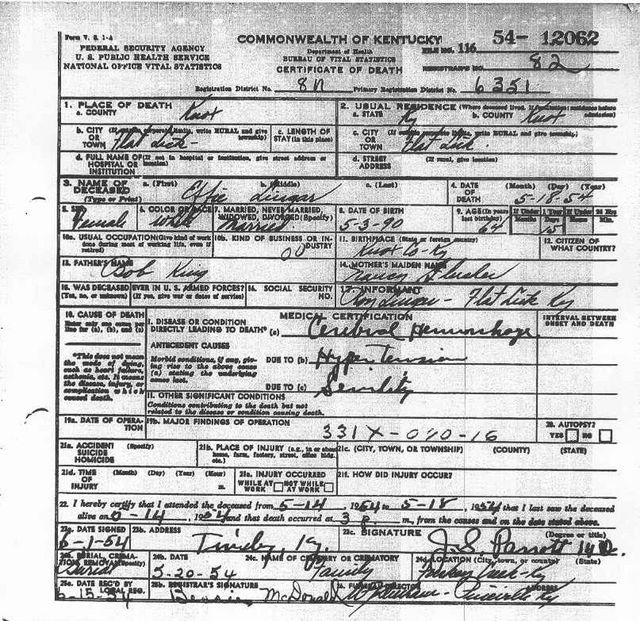 Form V. S. 1-A
COMMONWEALTH OF KENTUCKY
FEDERAL SECURITY AGENCY
U. S. PUBLIC HEALTH SERVICE
NATIONAL OFFICE VITAL STATISTICS
Department of Health
BUREAU OF VITAL STATISTICS
CERTIFICATE OF DEATH
FILE NO. 116 54- 12062
REGISTRAR'S NO. 82
Registration District No. Primary Registration District No. 6351
1. PLACE OF DEATH
a. COUNTY Knox
2. USUAL RESIDENCE
a. STATE Ky b. COUNTY Knox
b. CITY OR TOWN Flat Lick
c. LENGTH OF STAY (in this place)
c. CITY OR TOWN Flat Lick
d. FULL NAME OF HOSPITAL OR INSTITUTION (If not in hospital or institution, give street address or location)
d. STREET ADDRESS (If rural, give location)
3. NAME OF DECEASED (Type or Print)
a. (First) b. (Middle) c. (Last)
Effie
4. DATE OF DEATH (Month) (Day) (Year)
5-18-54
5. SEX Female
6. COLOR OR RACE White
7. MARRIED, NEVER MARRIED, WIDOWED, DIVORCED (Specify) Married
8. DATE OF BIRTH 5-3-90
9. AGE (In years last birthday) 64
Months Days 15 Hours Min.
10a. USUAL OCCUPATION (Give kind of work done during most of working life, even if retired)
10b. KIND OF BUSINESS OR INDUSTRY
11. BIRTHPLACE (State or foreign country) Knox Co Ky
12. CITIZEN OF WHAT COUNTRY?
13. FATHER'S NAME Bob King
14. MOTHER'S MAIDEN NAME Nancy
15. WAS DECEASED EVER IN U. S. ARMED FORCES?
(Yes, no, or unknown) (If yes, give war or dates of service)
16. SOCIAL SECURITY NO.
17. INFORMANT Flat Lick Ky
18. CAUSE OF DEATH
Enter only one cause per line for (a), (b), and (c)
MEDICAL CERTIFICATION
INTERVAL BETWEEN ONSET AND DEATH
I. DISEASE OR CONDITION DIRECTLY LEADING TO DEATH* (a) Cerebral Hemorrhage
ANTECEDENT CAUSES
Morbid conditions, if any, giving rise to the above cause (a) stating the underlying cause last.
DUE TO (b) Hypertension
DUE TO (c) Senility
*This does not mean the mode of dying, such as heart failure, asthenia, etc. It means the disease, injury, or complication which caused death.
II. OTHER SIGNIFICANT CONDITIONS
Conditions contributing to the death but not related to the disease or condition causing death.
19a. DATE OF OPERATION
19b. MAJOR FINDINGS OF OPERATION
331X-
20. AUTOPSY?
YES NO
21a. ACCIDENT SUICIDE HOMICIDE (Specify)
21b. PLACE OF INJURY (e.g., in or about home, farm, factory, street, office bldg., etc.)
21c. (CITY, TOWN, OR TOWNSHIP) (COUNTY) (STATE)
21d. TIME OF INJURY (Month) (Day) (Year) (Hour)
21e. INJURY OCCURRED
WHILE AT WORK NOT WHILE AT WORK
21f. HOW DID INJURY OCCUR?
22. I hereby certify that I attended the deceased from 5-14 1954 to 5-18, 1954 that I last saw the deceased
alive on 1954 and that death occurred at 3 p m., from the causes and on the date stated above.
23a. DATE SIGNED 6-1-54
23b. ADDRESS Ky.
23c. SIGNATURE J.S. Parrott M.D. (Degree or title)
24a. BURIAL, CREMATION, REMOVAL (Specify) Burial
24b. DATE 5-20-54
24c. NAME OF CEMETERY OR CREMATORY Family
24d. LOCATION (City, town, or county) (State)
25a. DATE REC'D BY LOCAL REG. 6-15-54
25b. REGISTRAR'S SIGNATURE McDonald
FUNERAL DIRECTOR ADDRESS